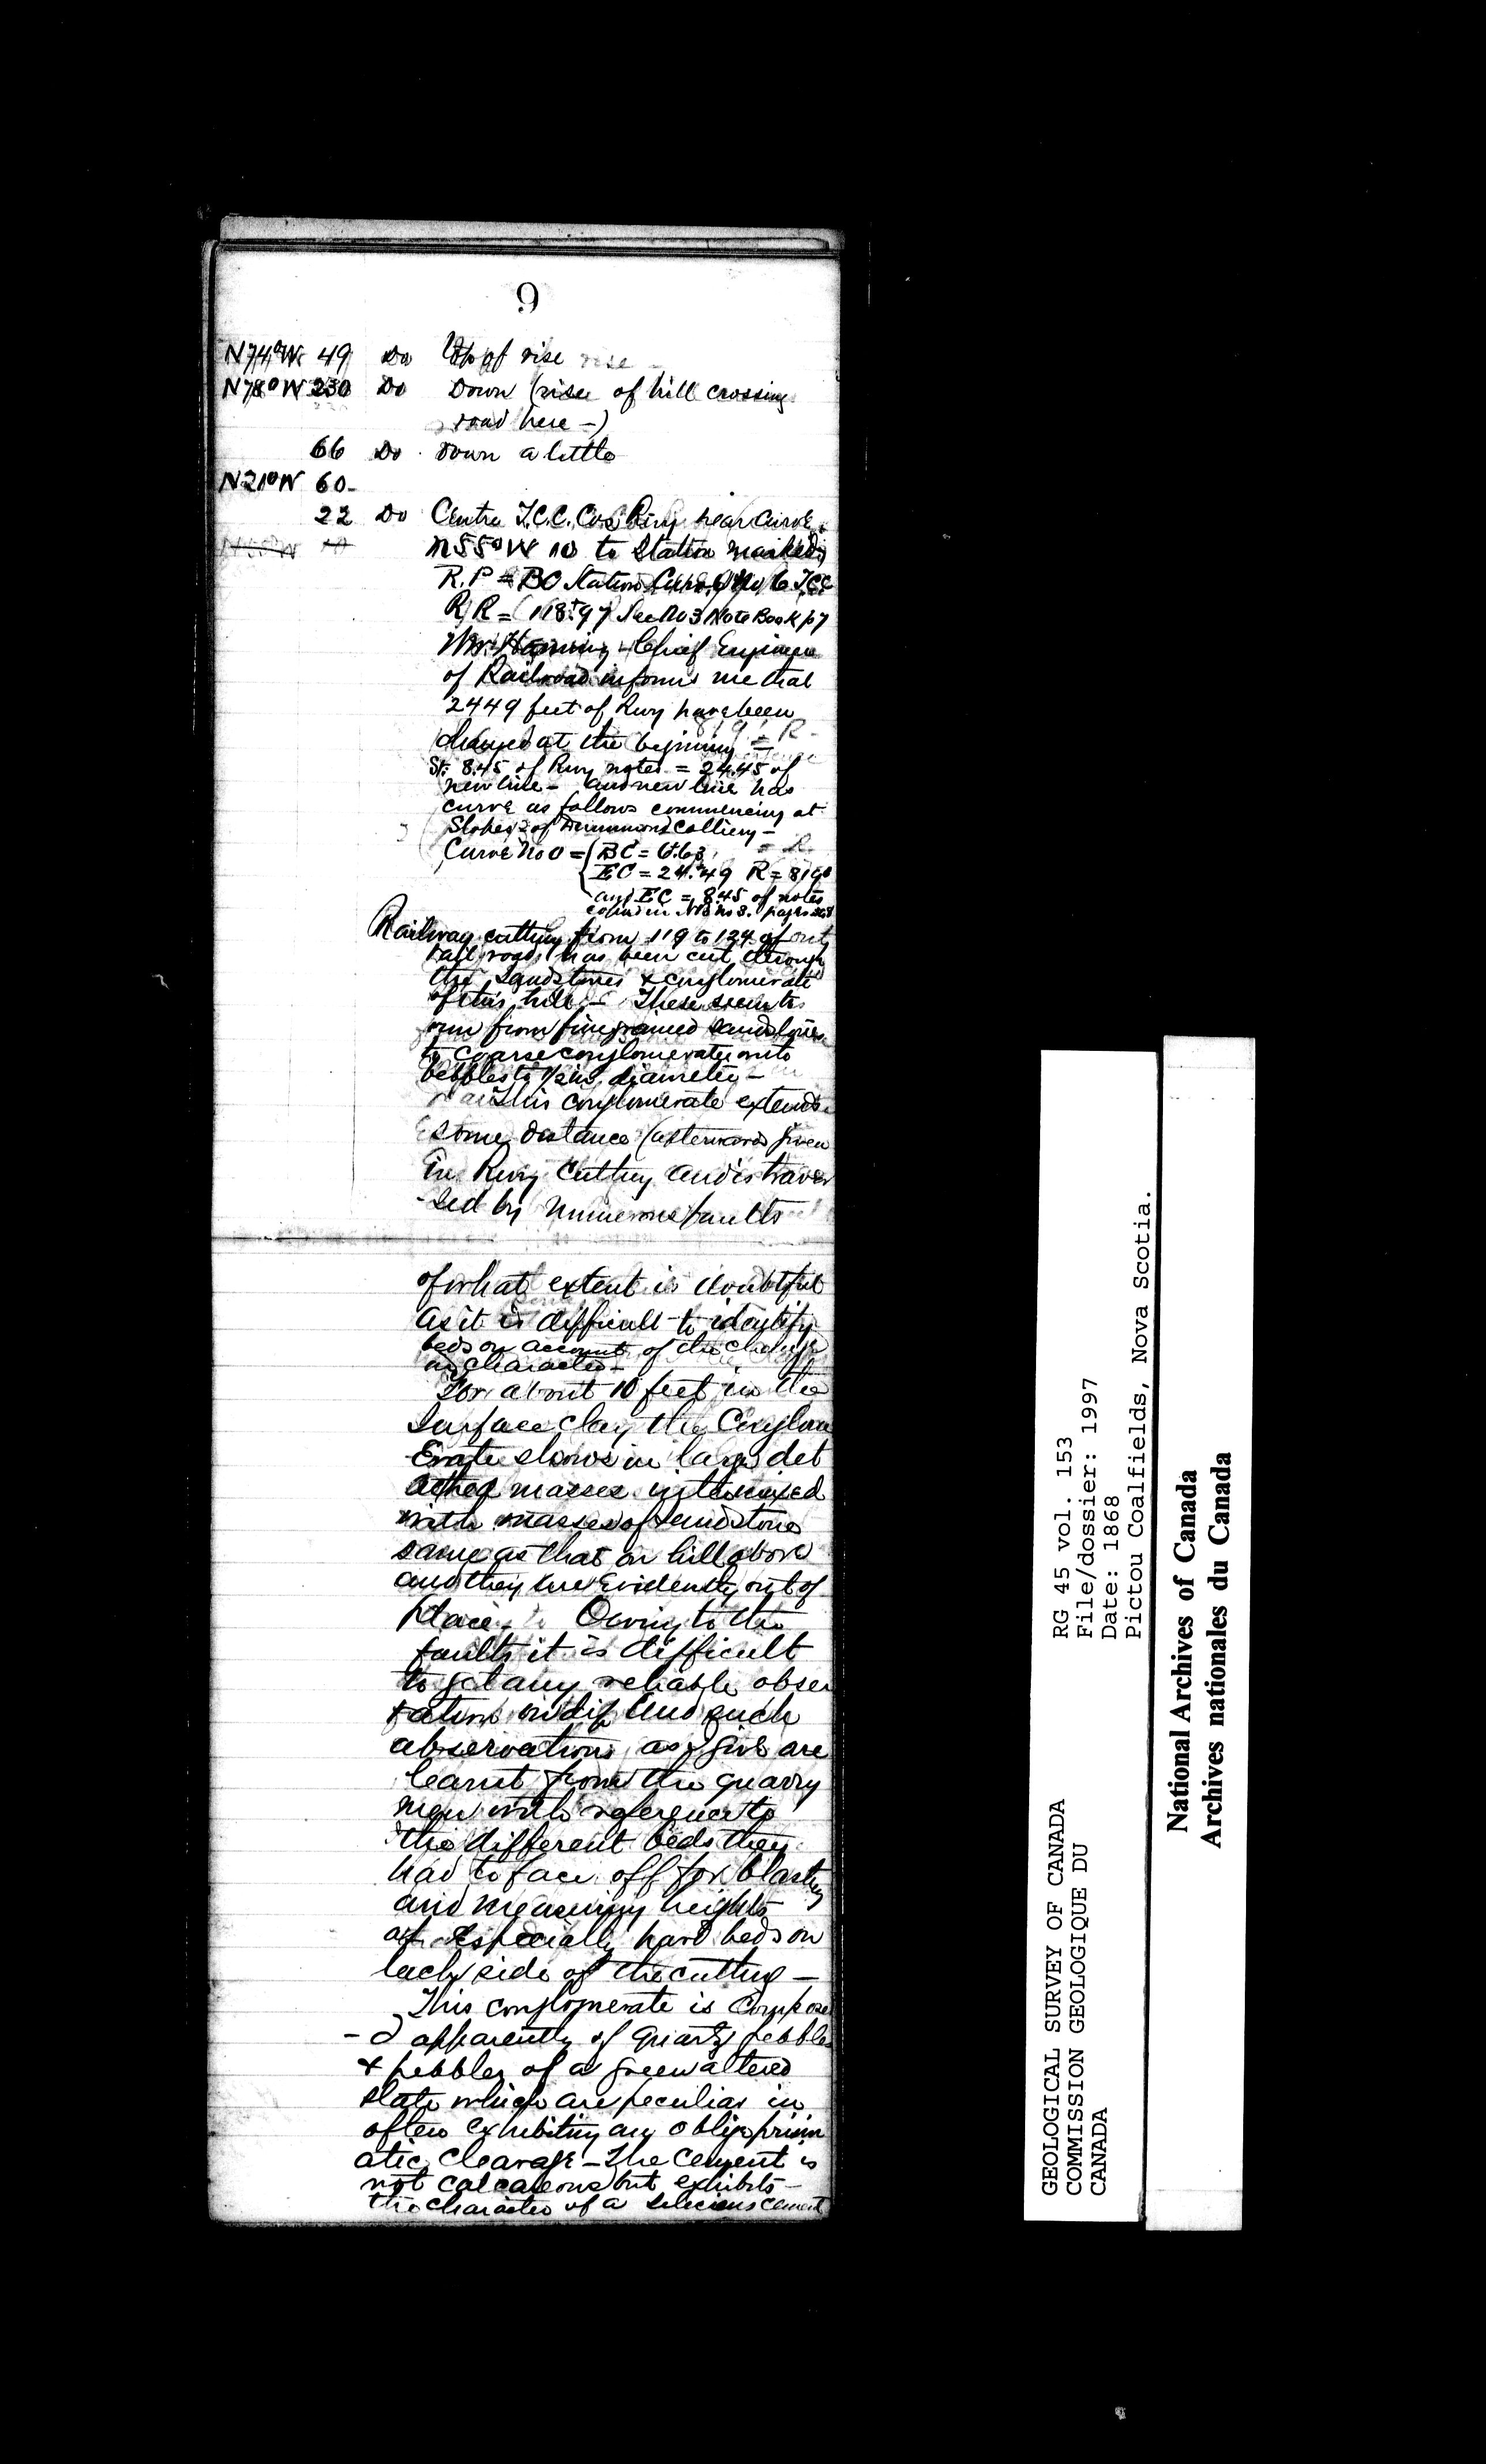 9
N74°W 49 Do Top of rise
N78°W 230 Do Down (rise of hill crossing
road here -)
66 Do Down a little
N21°W 60-
22 Do Centre I.C.C. Co's Rwy near Curve
N55°W 10 to Station marked
R.P = BC Station Curve No 6 ICC
R R = 118+97 See No 3 Note Book p7
Mr. Chief Engineer
of Railroad informs me that
2449 feet of Rwy have been
changed at the begining
St: 8.45 of Rwy notes = 24.45 of
new line - and new line has
curve as follows commencing at
Slope of Drummond Colliery -
Curve No 0 = BC = 6.63
EC = 24.49 R = 819
and EC = 8.45 of notes
in NB No 3. pages
Railway cutting from 119 to 134 of
rail road has been cut through
the Sandstones & conglomerate
of this hill - These seem to
run from fine grained sandstones
to coarse conglomerate
pebbles to 1/2 in. diameter -
This conglomerate extends
some distance (afterwards given
in Rwy Cutting and is traver
-sed by numerous faults
of what extent is doubtful
As it is difficult to identify
beds on account of the change
in character -
For about 10 feet in the
Surface clay the Conglom
Erate shows in large det
ached masses intermixed
with masses of sandstone
same as that on hill above
and they are Evidently out of
place. Owing to the
faults it is difficult
to get any reliable obser
vation on dip and such
observations as I give are
learnt from the quarry
men with reference to
the different beds they
had to face off for blasting
and measuring heights
of especially hard beds on
each side of the cutting -
This conglomerate is Compose
- d apparently of quartz pebbles
& pebbles of a green altered
slate which are peculiar in
often exhibiting an oblique prism
atic cleavage - The Cement is
not calcareous but exhibits -
the character of a silicious cement
GEOLOGICAL SURVEY OF CANADA
COMMISSION GEOLOGIQUE DU
CANADA
RG 45 vol. 153
File/dossier: 1997
Date: 1868
Pictou Coalfields, Nova Scotia.
National Archives of Canada
Archives nationales du Canada